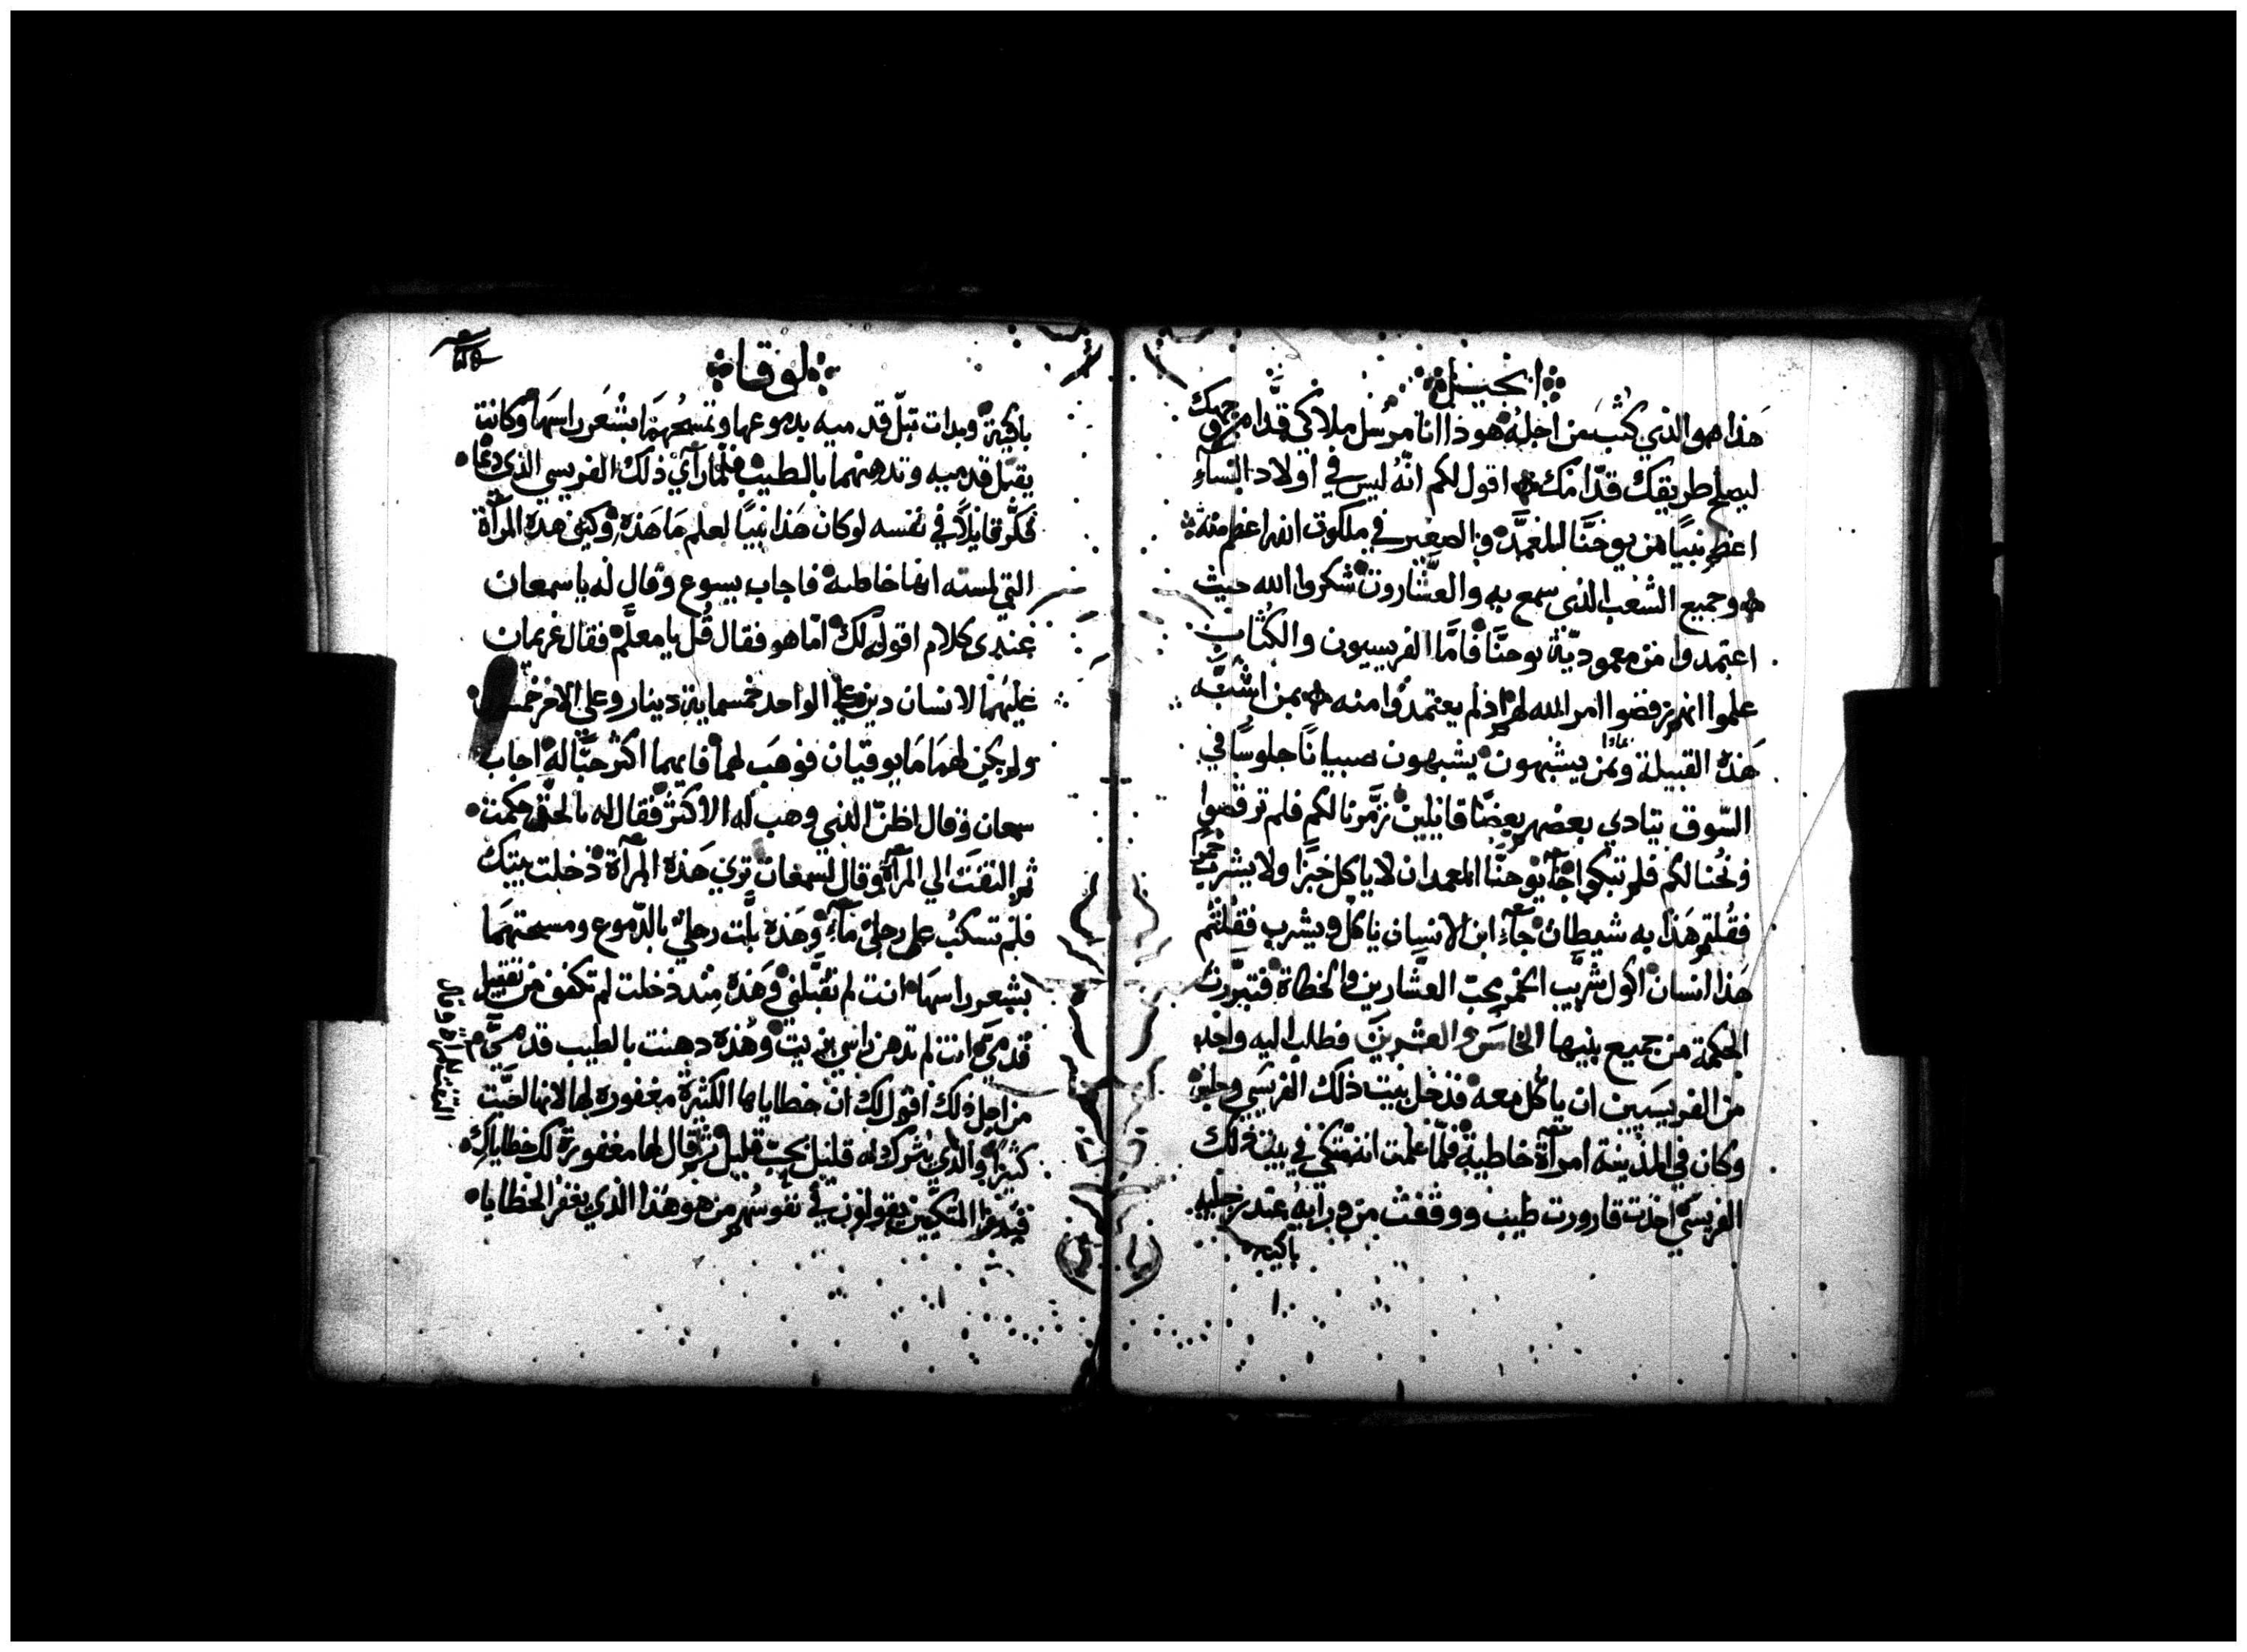 انجيل
هذا هو الذي كُتب من اجله هوذا انا مرسل ملاكي قدّام وجهك
ليصلح طريقك قدّامك اقول لكم انّه ليس في اولاد النساء
اعظم نبيًا من يوحنّا المعمّد والصغير في ملكوت الله اعظم منه
وجميع الشعب الذي سمع به والعشّارون شكروا الله حيث
اعتمدوا من معموديّة يوحنّا فامّا الفريسيون والكُتّاب
علموا انهم رفضوا امر الله لهم اذ لم يعتمدوا منه بمن اشبّه
هذه القبيلة وبمن يشبهون يشبهون صبيانًا جلوسًا في
السّوق ينادي بعضهم بعضًا قايلين زمّرنا لكم فلم ترقصوا
ونُحنا لكم فلم تبكوا جآ يوحنّا المعمدان لا ياكل خبزًا ولا يشرب خمرا
فقُلتم هذا به شيطان جآء ابن الانسان ياكل ويشرب فقلتم
هذا انسان اكول شرّيب الخمر يحبّ العشّارين والخطاة فتبرّرت
الحكمة من جميع بنيها الخامس والعشرين فطلب اليه واحد
من الفريسيين ان ياكل معه فدخل بيت ذلك الفريسي وجلس
وكان في المدينة امرآة خاطية فلمّا علمت انه متكي في بيت ذلك
الفريسي اخذت قارورت طيب ووقفت من ورايه عند رجليه
باكيه
لوقا
باكية وبدات تبلّ قدميه بدموعها وتمسحُهما بشعر راسها وكانت
يقبّل قدميه وتدهنهما بالطيب فلمّا رآي ذلك الفريسي الذي دعا
فكّر قايلاً في نفسه لو كان هذا نبيًا لعلم ما هذه وكيف هده المرآة
التي لمسته انها خاطية فاجاب يسوع وقال له يا سمعان
عندي كلام اقوله لك امّا هو فقال قُل يا معلّم فقال غريمان
عليهما لانسان دين علي الواحد خمسماية دينار وعلي الاخر
ولم يكن لهما ما يوفيان فوهب لهما فايهما اكثر حبًّا له اجاب
سمعان وقال اظنّ الذي وهب له الاكثر فقال له بالحق حكمت
ثم التفت الي المرآة وقال لسمعان تري هذه المرآة دخلت بيتك
فلم تسكب على رجليّ مآء وهذه بلّت رجليّ بالدّموع ومسحتهما
بشعر راسها انت لم تقبّلني وهذه منذ دخلت لم تكفف من تقبيل
قدميّ انت لم تدهن راسي بزيت وهذه دهنت بالطيب قدميّ
من اجل ذلك اقول لك ان خطاياها الكثيرة مغفورة لها لانها احبّت
كثيرًا والذي يترك له قليل يحبّ قليل ثم قال لها مغفورة لك خطاياك
فبدا المتكيين يقولون في نفوسهم من هو هذا الذي يغفر الخطايا